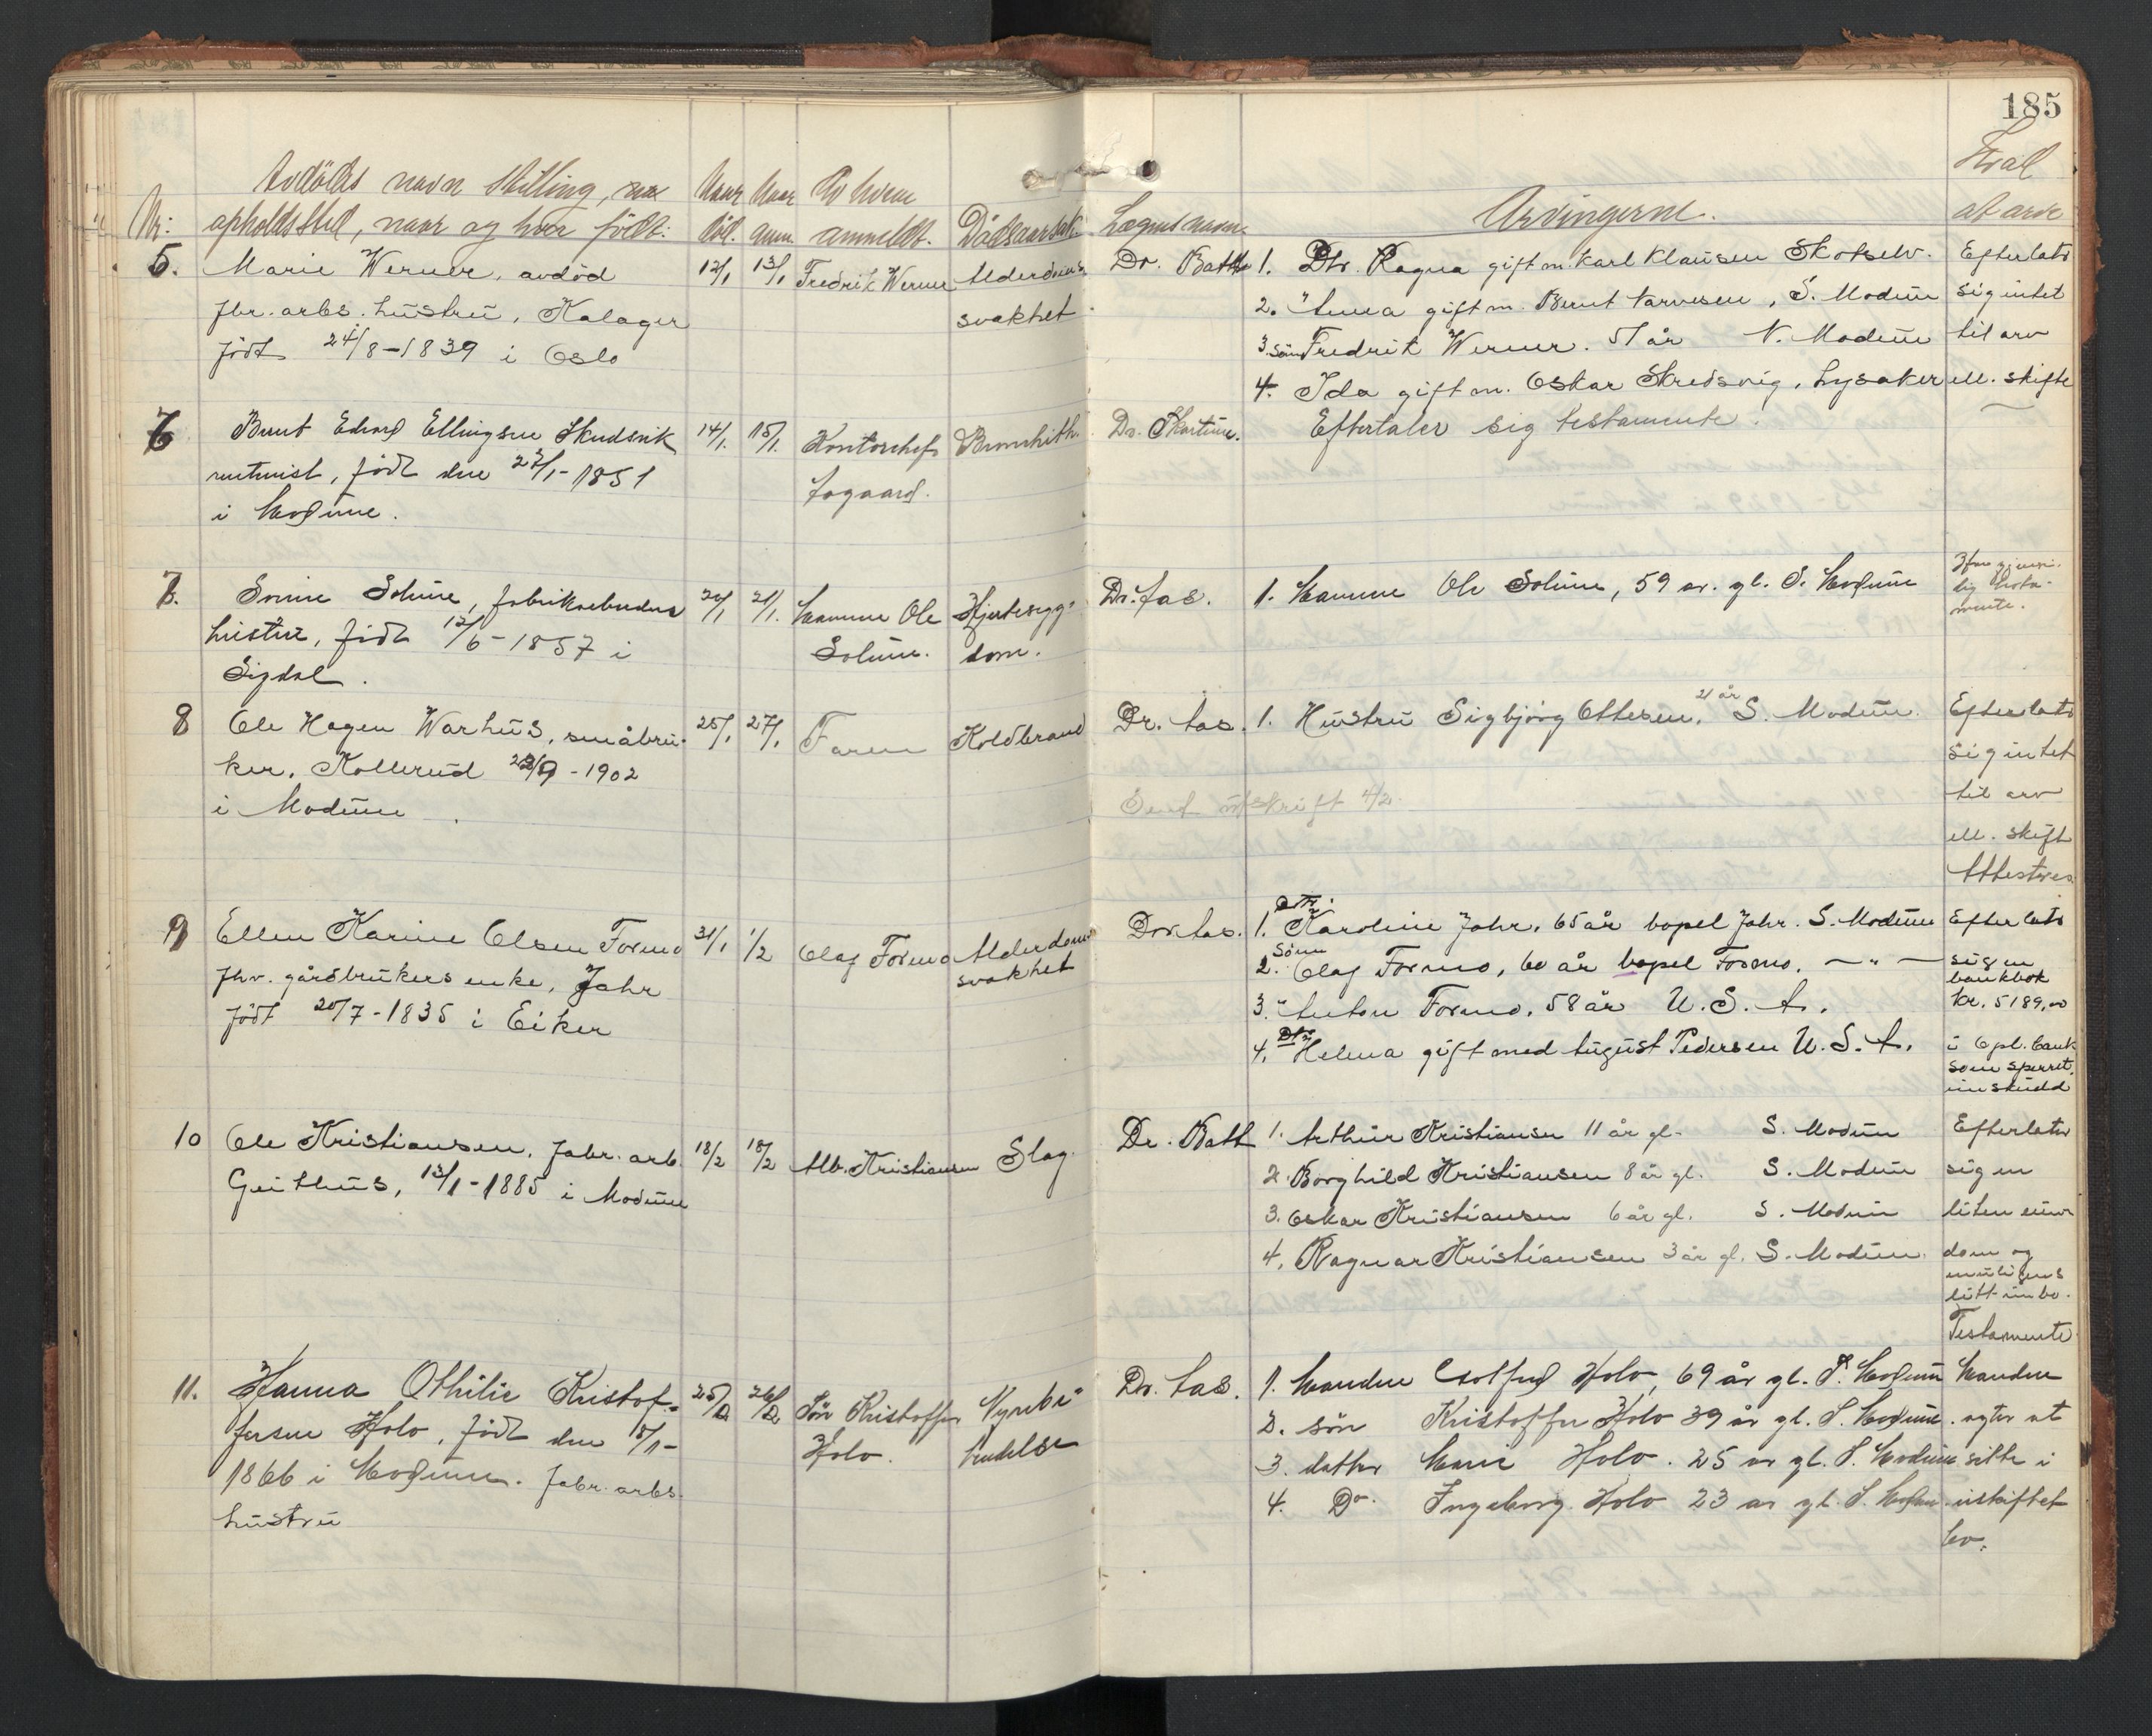 185
Avdødes navn stilling,
Nr: opholdssted, naar og hvor født:
Naar död.
Naar anm.
Av hvem anmeldt.
Dödsaarsak.
Lægens navn.
Arvingerne.
Hvad at arve
5. Marie Werner, avdöd
fbr. arbs. hustru, Kalager
födt 24/8-1839 i Oslo
12/1 13/1 Fredrik Werner Alderdoms
svakhet
Dr. Bath
1. Dtr. Ragna gift m. Karl Klausen Skotselv.
2. " Anna gift m. Bernt Tarvesen, S. Modum
3. Sönn Fredrik Werner. 51 år N. Modum
4. Ida gift m. Oskar Skredsvig, Lysaker
Efterlats
sig intet
til arv
ell. skifte
6 Bernt Edvard Ellingsen Skudsvik
rentenist, född den 27/1-1851
i Modum.
14/1. 15/1. Kontorchef
Aagaard.
Bronchith.
Dr. Skartum.
Eftertaler sig testamente.
7. Sonie Solum, fabrikarbeider
hustru, född 12/6-1857 i
Sigdal.
20/1 21/1. Mannen Ole
Solum.
Hjertesyg-
dom.
Dr. Aas.
1. Mannen Ole Solum, 59 år. gl. S. Modum
Ifør gjensi-
dig testa-
mente.
8 Ole Hagen Warhus, småbru-
ker, Kollerud 23/9-1902
i Modum
25/1 27/1 Faren Koldbrand
Dr. Aas. 1. Hustru Sigbjørg Ottesen, 21 år S. Modum.
Send utskrift 4/2.
Efterlats
sig intet
til arv
ell. skift
Attesteres
9 Ellen Karine Olsen Formo
fhv. gårdbrukers enke, Jahr
födt 20/7-1835 i Eiker
31/1 1/2 Olaf Formo Alderdoms
svakhet
Dr. Aas.
Dtr.
1. Karoline Jahr, 65 år bopel Jahr. S. Modum
Sönn
2. Olaf Formo, 60 år bopel Formo. — " —
3. " Anton Formo, 58 år U. S. A.
Dtr
4. Helena gift med August Pedersen U. S. A.
Efterlats
sig en
bankbok
Kr. 5189,00
i Opl. bank
som sperret
inskudd
10 Ole Kristiansen, fabr. arb.
Geithus, 13/1-1885 i Modum
18/2 18/2 Alb. Kristiansen Slag.
Dr. Bath
1. Arthur Kristiansen 11 år gl. S. Modum
2. Borghild Kristiansen 8 år gl. S. Modum
3. Oskar Kristiansen 6 år gl. S. Modum
4. Ragnar Kristiansen 3 år gl. S. Modum.
Efterlater
sig en
liten eien
dom og
muligens
litt innbo.
11. Hanna Othilie Kristof-
fersen Holo, född den 15/1-
1866 i Modum. fabr. arbs.
hustru
25/2 26/2 Søn Kristoffer
Holo.
Nyrebe-
tendelse
Dr. Aas.
1. Manden Holo, 69 år gl. S. Modum
2. søn Kristoffer Holo 39 år gl. S. Modum.
3. datter Marie Holo. 25 år gl. S. Modum
4. Do. Ingeborg Holo 23 år gl. S. Modum
Testamente
Manden
agter at
sitte i
uskiftet
bo.